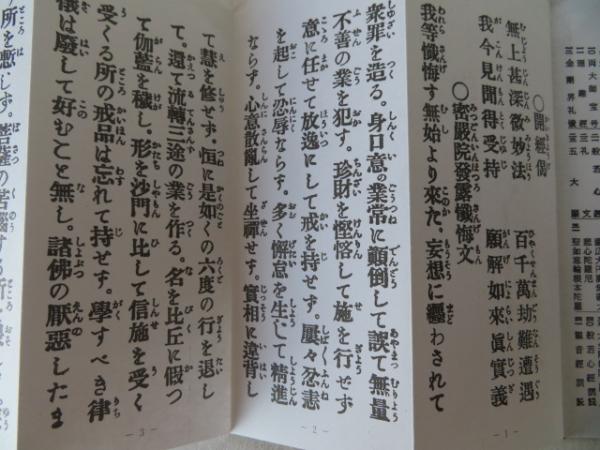 〇開經偈
無上甚深微妙法　百千萬劫難遭遇
我今見聞得受持　願解如來眞實義
〇密嚴院發露懺悔文
我等懺悔す無始より來た、妄想に纒わされて
- 1 -
衆罪を造る。身口意の業常に顚倒して誤て無量
不善の業を犯す。珍財を慳悋して施を行せず
意に任せて放逸にして戒を持せず。屢々忿恚
を起して忍辱ならず。多く懈怠を生じて精進
ならず。心意散亂して坐禪せず。實相に違背し
- 2 -
て慧を修せず。恒に是如くの六度の行を退し
て。還て流轉三途の業を作る。名を比丘に假つ
て伽藍を穢し。形を沙門に比して信施を受く
受くる所の戒品は忘れて持せず。學すべき律
儀は廢して好むこと無し。諸佛の厭惡したま
- 3 -
ふ所を慙じず。菩薩の苦惱する所